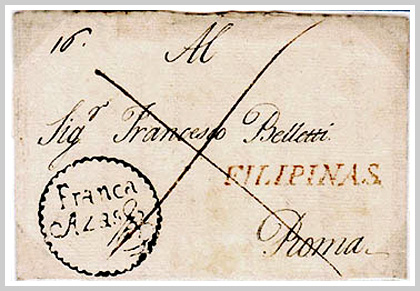 16.
Al
Sig.r Francesco Belletti
FILIPINAS.
Franca
Roma